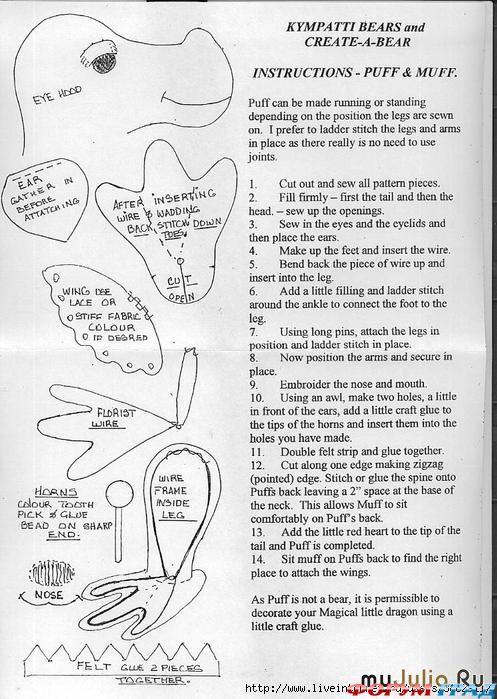 EYE HOOD
EAR
GATHER IN
BEFORE
ATTATCHING
AFTER INSERTING
WIRE & WADDING
BACK STITCH DOWN
TOES
CUT
OPEN
WING USE
LACE OR
STIFF FABRIC
COLOUR
IF DESIRED
FLORIST
WIRE
HORNS
COLOUR TOOTH
PICK & GLUE
BEAD ON SHARP
END.
WIRE
FRAME
INSIDE
LEG
NOSE
FELT GLUE 2 PIECES
TOGETHER.
KYMPATTI BEARS and
CREATE-A-BEAR
INSTRUCTIONS - PUFF & MUFF.
Puff can be made running or standing
depending on the position the legs are sewn
on. I prefer to ladder stitch the legs and arms
in place as there really is no need to use
joints.
1. Cut out and sew all pattern pieces.
2. Fill firmly – first the tail and then the
head. – sew up the openings.
3. Sew in the eyes and the eyelids and
then place the ears.
4. Make up the feet and insert the wire.
5. Bend back the piece of wire up and
insert into the leg.
6. Add a little filling and ladder stitch
around the ankle to connect the foot to the
leg.
7. Using long pins, attach the legs in
position and ladder stitch in place.
8. Now position the arms and secure in
place.
9. Embroider the nose and mouth.
10. Using an awl, make two holes, a little
in front of the ears, add a little craft glue to
the tips of the horns and insert them into the
holes you have made.
11. Double felt strip and glue together.
12. Cut along one edge making zigzag
(pointed) edge. Stitch or glue the spine onto
Puffs back leaving a 2” space at the base of
the neck. This allows Muff to sit
comfortably on Puff’s back.
13. Add the little red heart to the tip of the
tail and Puff is completed.
14. Sit muff on Puffs back to find the right
place to attach the wings.
As Puff is not a bear, it is permissible to
decorate your Magical little dragon using a
little craft glue.